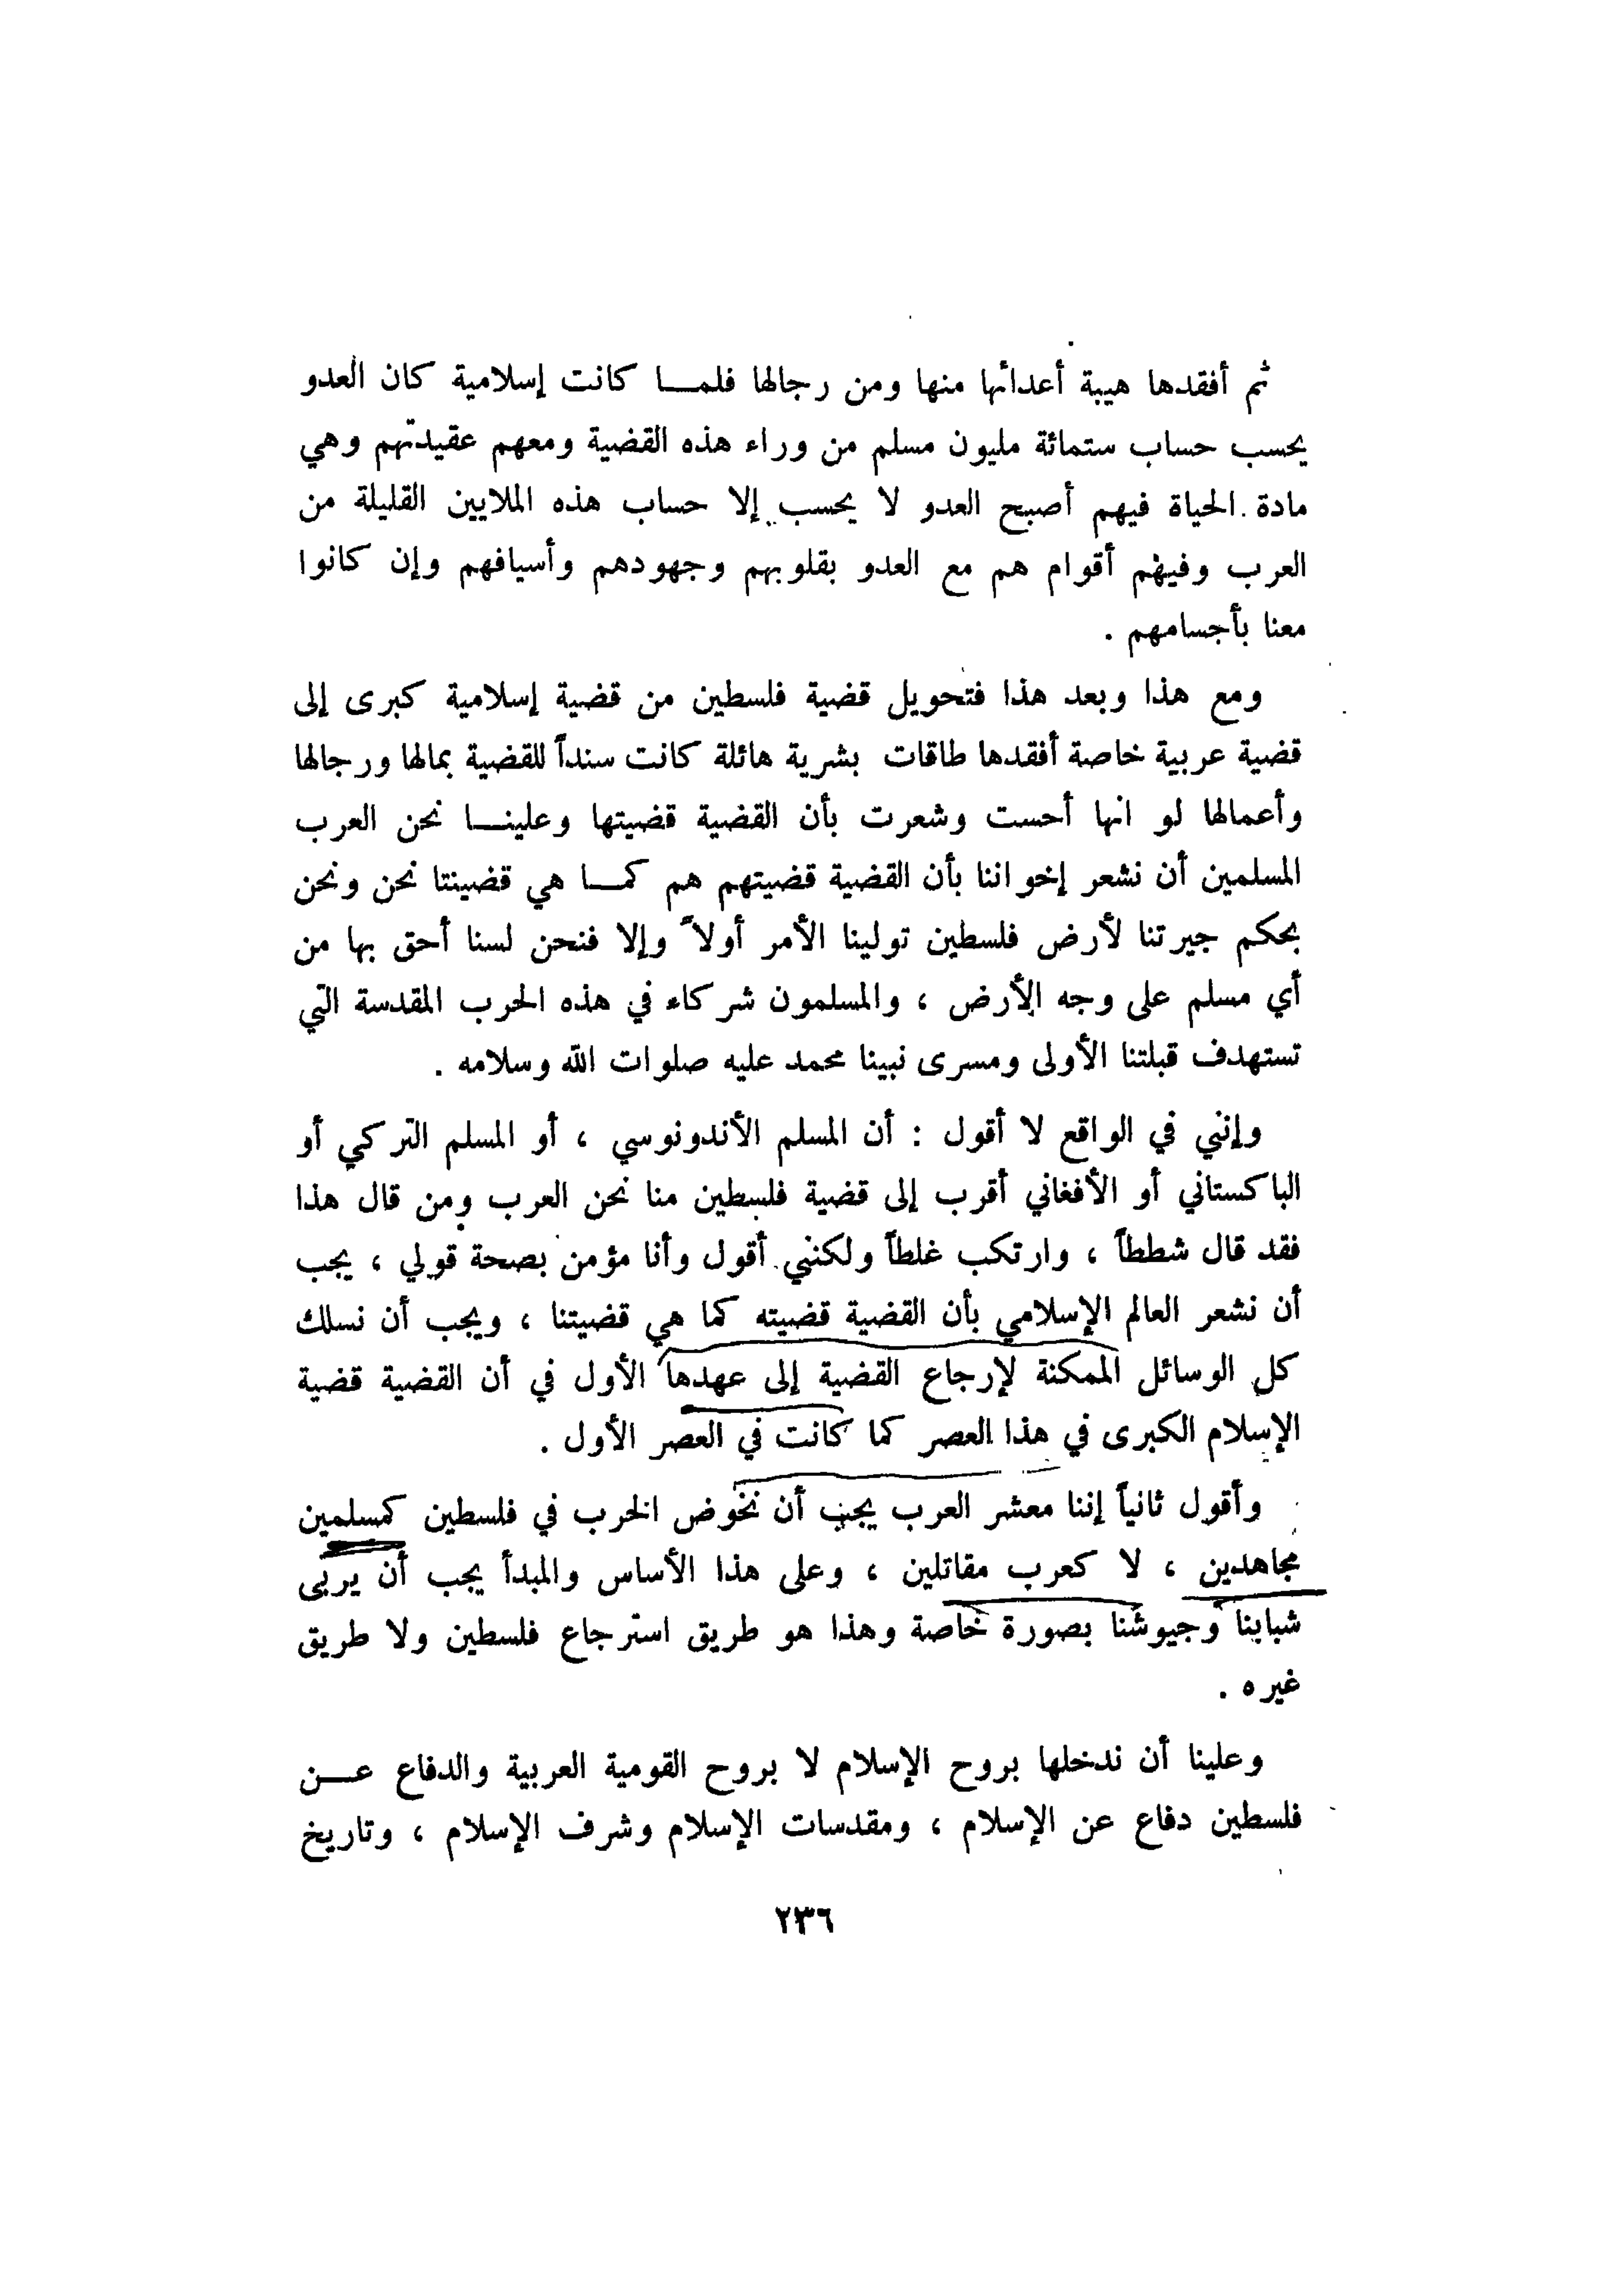 ثم أفقدها هيبة أعدائها منها ومن رجالها فلمـــا كانت إسلامية كان العدو
يحسب حساب ستمائة مليون مسلم من وراء هذه القضية ومعهم عقيدتهم وهي
مادة الحياة فيهم أصبح العدو لا يحسب إلا حساب هذه الملايين القليلة من
العرب وفيهم أقوام هم مع العدو بقلوبهم وجهودهم وأسيافهم وإن كانوا
معنا بأجسامهم .
ومع هذا وبعد هذا فتحويل قضية فلسطين من قضية إسلامية كبرى إلى
قضية عربية خاصة أفقدها طاقات بشرية هائلة كانت سنداً للقضية بمالها ورجالها
وأعمالها لو انها أحست وشعرت بأن القضية قضيتها وعلينـــا نحن العرب
المسلمين أن نشعر إخواننا بأن القضية قضيتهم هم كمـــا هي قضيتنا نحن ونحن
بحكم جيرتنا لأرض فلسطين تولينا الأمر أولاً وإلا فنحن لسنا أحق بها من
أي مسلم على وجه الأرض ، والمسلمون شركاء في هذه الحرب المقدسة التي
تستهدف قبلتنا الأولى ومسرى نبينا محمد عليه صلوات الله وسلامه .
وإنني في الواقع لا أقول : أن المسلم الأندونوسي ، أو المسلم التركي أو
الباكستاني أو الأفغاني أقرب إلى قضية فلسطين منا نحن العرب ومن قال هذا
فقد قال شططاً ، وارتكب غلطاً ولكنني أقول وأنا مؤمن بصحة قولي ، يجب
أن نشعر العالم الإسلامي بأن القضية قضيته كما هي قضيتنا ، ويجب أن نسلك
كل الوسائل الممكنة لإرجاع القضية إلى عهدها الأول في أن القضية قضية
الإسلام الكبرى في هذا العصر كما كانت في العصر الأول .
وأقول ثانياً إننا معشر العرب يجب أن نخوض الحرب في فلسطين كمسلمين
مجاهدين ، لا كعرب مقاتلين ، وعلى هذا الأساس والمبدأ يجب أن يربى
شبابنا وجيوشنا بصورة خاصة وهذا هو طريق استرجاع فلسطين ولا طريق
غيره .
وعلينا أن ندخلها بروح الإسلام لا بروح القومية العربية والدفاع عـــن
فلسطين دفاع عن الإسلام ، ومقدسات الإسلام وشرف الإسلام ، وتاريخ
٢٣٦